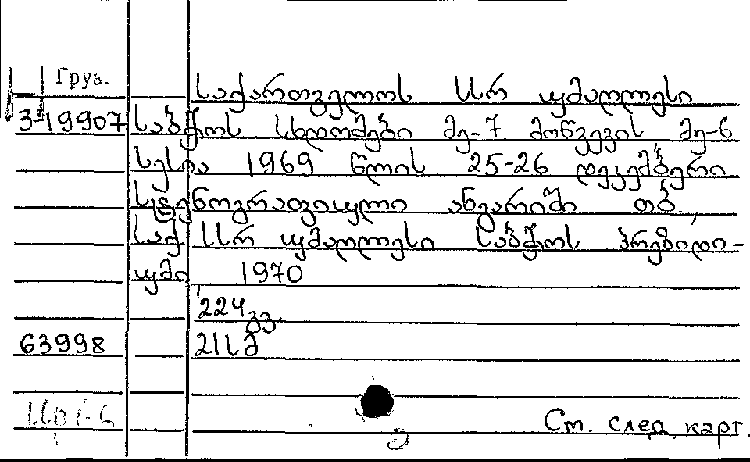 Груз.
საქართველოს სსრ უმაღლესი
3-19907 საბჭოს სხდომები მე-7 მოწვევის მე-6
სესია 1969 წლის 25-26 დეკემბერი
სტენოგრაფიული ანგარიში თბ,
საქ სსრ უმაღლესი საბჭოს პრეზიდი-
უმი 1970
224 გვ.
63998 21სმ
См. след. карт.